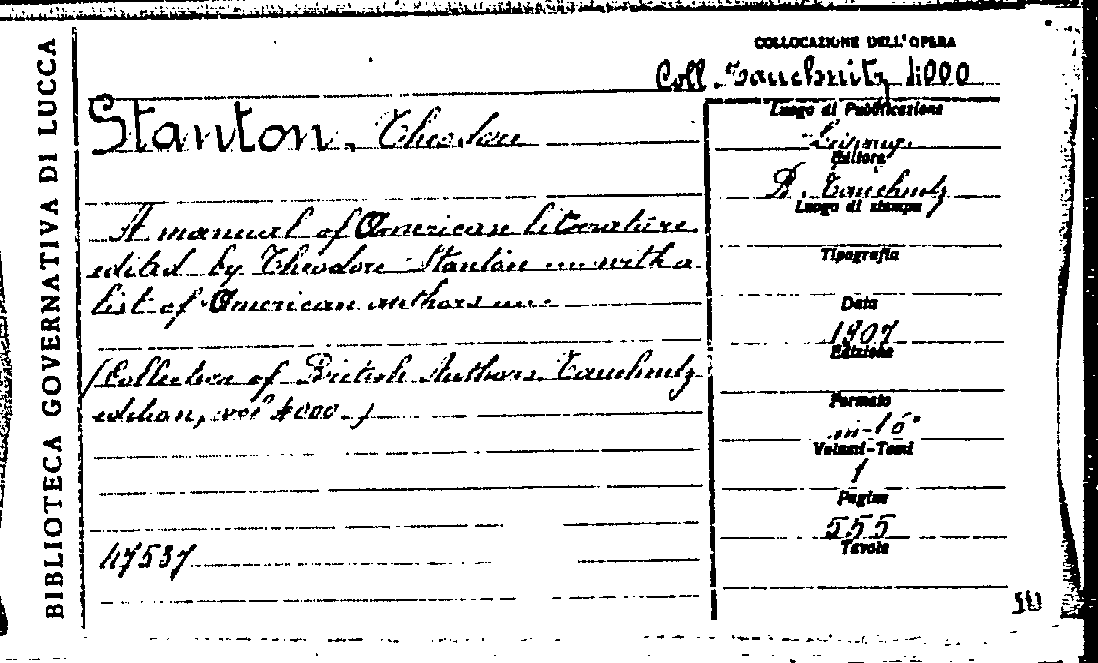 BIBLIOTECA GOVERNATIVA DI LUCCA
COLLOCAZIONE DELL'OPERA
Coll. Tauchnitz 4000
Stanton, Theodore
A manual of American literature
edited by Theodore Stanton .... with a
list of American authors ....
(Collection of British Authors. Tauchnitz
edition, vol 4000.)
47537
Luogo di Pubblicazione
Editore
B. Tauchnitz
Luogo di stampa
Tipografia
Data
1907
Edizione
Formato
in-16°
Volumi-Tomi
1
Pagine
555
Tavole